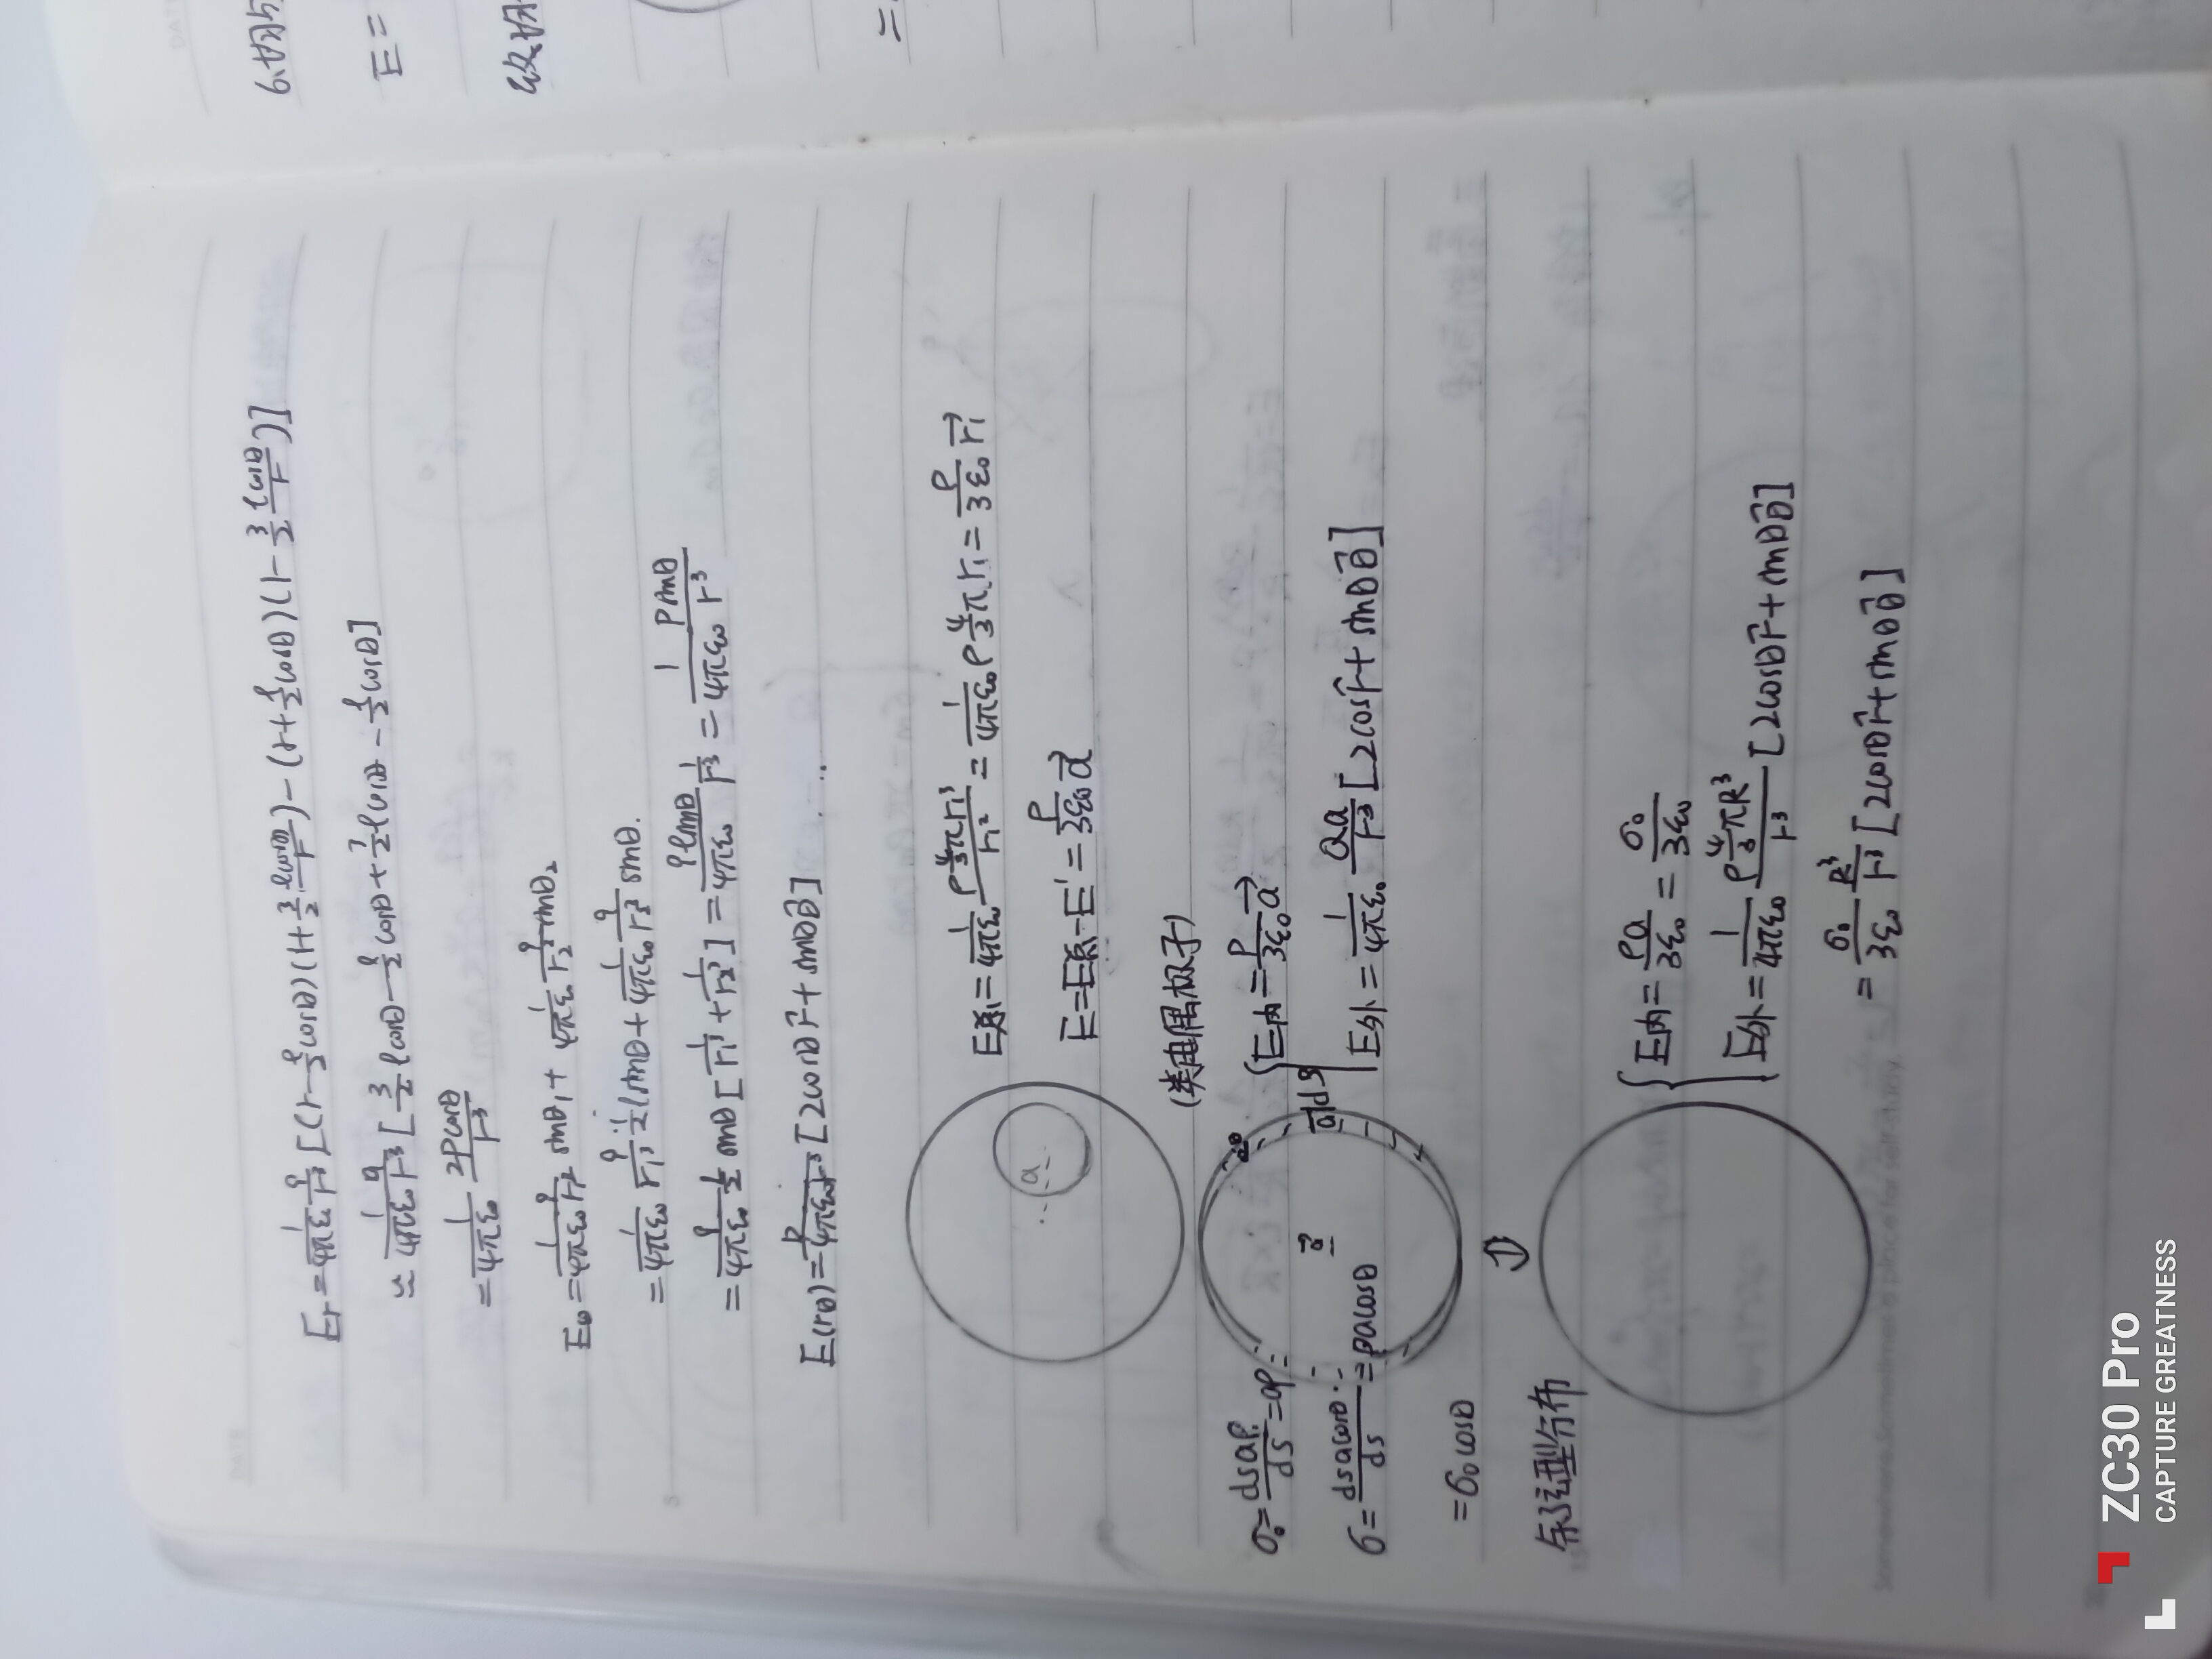 E_r = \frac{1}{4πε_0} \frac{q}{r^3} [(r - \frac{l}{2} cosθ)(1 + \frac{3}{2} \frac{l cosθ}{r}) - (r + \frac{l}{2} cosθ)(1 - \frac{3}{2} \frac{l cosθ}{r})]
≈ \frac{1}{4πε_0} \frac{q}{r^3} [\frac{3}{2} l cosθ - \frac{l}{2} cosθ + \frac{3}{2} l cosθ - \frac{l}{2} cosθ]
= \frac{1}{4πε_0} \frac{2P cosθ}{r^3}
E_θ = \frac{1}{4πε_0} \frac{q}{r_1^2} sinθ_1 + \frac{1}{4πε_0} \frac{q}{r_2^2} sinθ_2
= \frac{1}{4πε_0} \frac{q}{r_1^3} \frac{l}{2} sinθ + \frac{1}{4πε_0} \frac{q}{r_2^3} sinθ.
= \frac{q}{4πε_0} \frac{l}{2} sinθ [\frac{1}{r_1^3} + \frac{1}{r_2^3}] = \frac{q l sinθ}{4πε_0} \frac{1}{r^3} = \frac{1}{4πε_0} \frac{P sinθ}{r^3}
E(rθ) = \frac{P}{4πε_0 r^3} [2cosθ \vec{r} + sinθ \vec{θ}]
a
= \frac{1}{4πε_0} \frac{ρ \frac{4}{3} π r_1^3}{r_1^2} = \frac{1}{4πε_0} ρ \frac{4}{3} π r_1 = \frac{ρ}{3ε_0} \vec{r_1}
- E' = \frac{ρ}{3ε_0} \vec{a}
(类电偶极子)
σ_0 = \frac{ds a ρ}{ds} = aρ
E内 = \frac{ρ}{3ε_0} \vec{a}
σ = \frac{ds a cosθ}{ds} = ρ a cosθ
E外 = \frac{1}{4πε_0} \frac{Qa}{r^3} [2cos \vec{r} + sinθ \vec{θ}]
= σ_0 cosθ
⇩
余弦型分布
E内 = \frac{ρa}{3ε_0} = \frac{σ_0}{3ε_0}
E外 = \frac{1}{4πε_0} \frac{ρ \frac{4}{3} π R^3}{r^3} [2cosθ \vec{r} + sinθ \vec{θ}]
= \frac{σ_0}{3ε_0} \frac{R^3}{r^3} [2cosθ \vec{r} + sinθ \vec{θ}]
E =
ZC30 Pro
CAPTURE GREATNESS